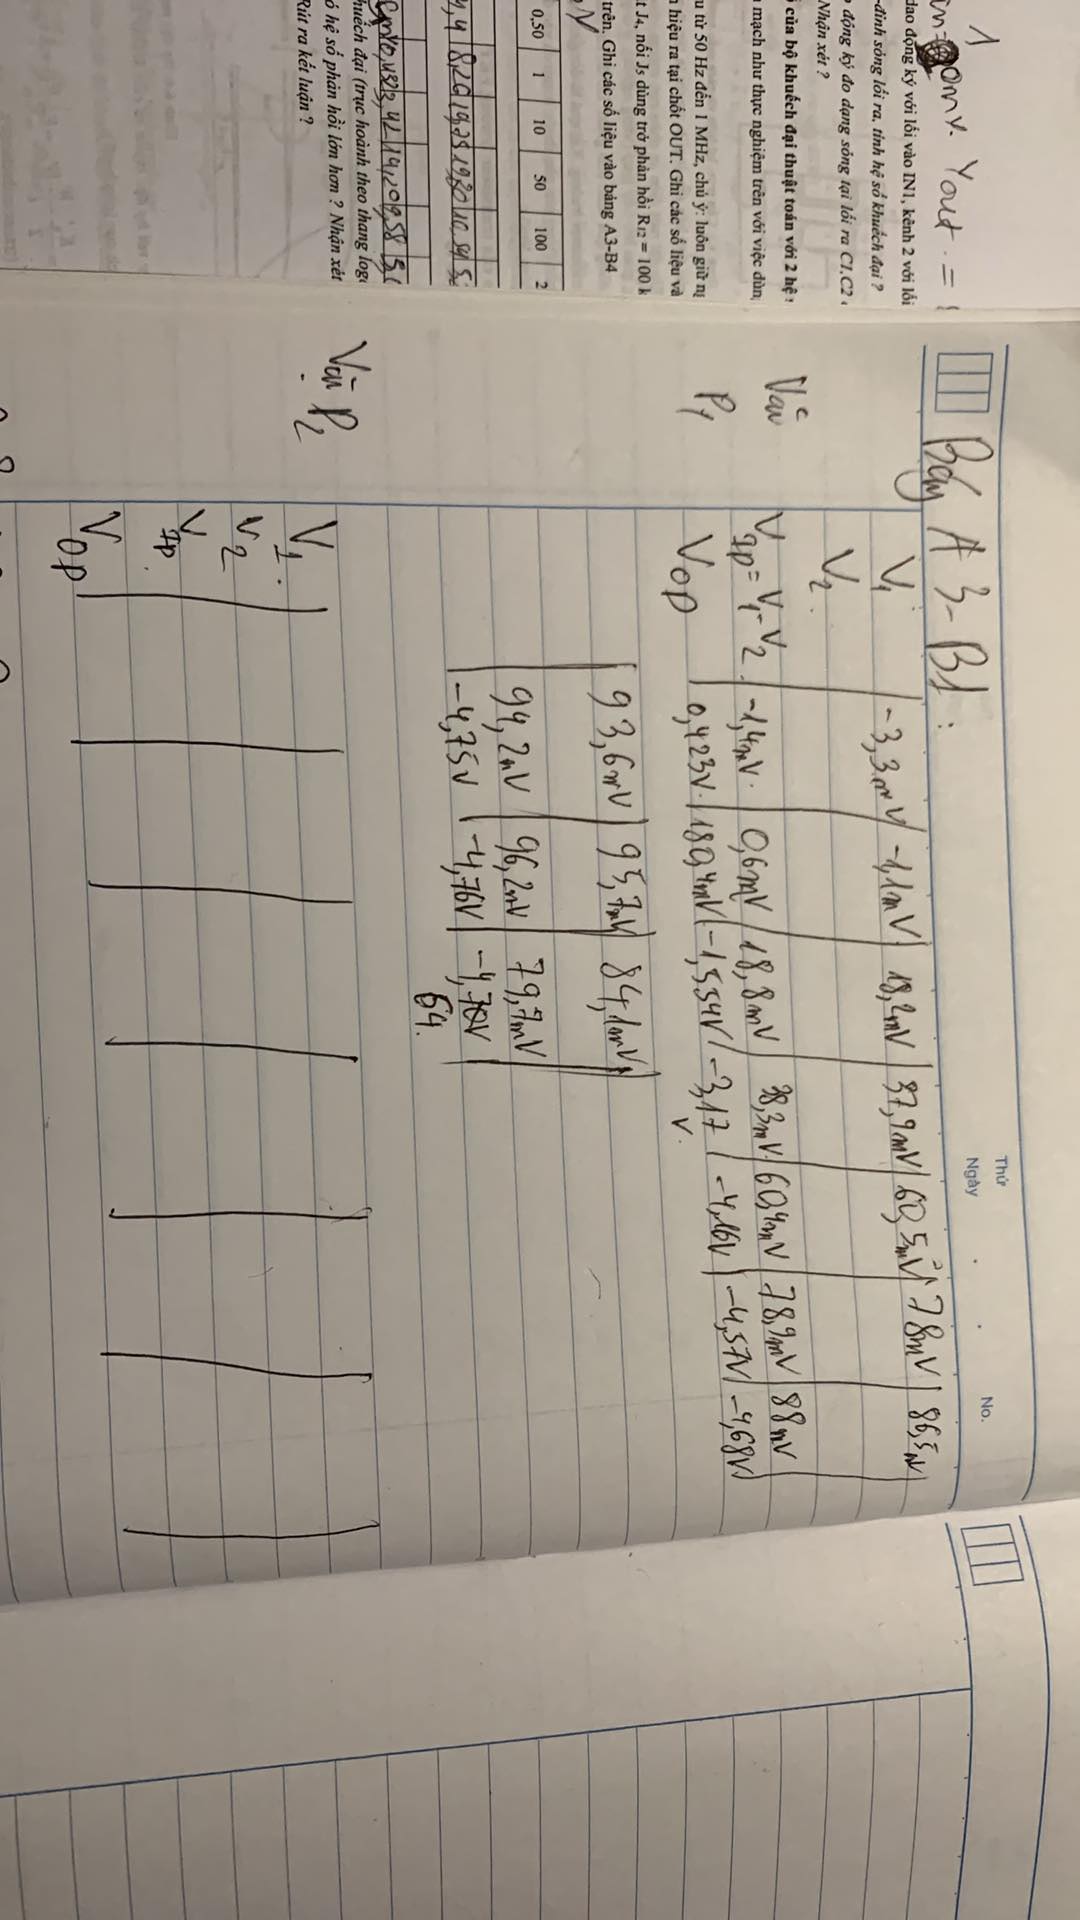 1
Yout =
dao động ký với lối vào IN1, kênh 2 với lối
-đỉnh sóng lối ra, tính hệ số khuếch đại ?
động ký đo dạng sóng tại lối ra C1,C2
Nhận xét ?
của bộ khuếch đại thuật toán với 2 hệ
mạch như thực nghiệm trên với việc dùn
từ 50 Hz đến 1 MHz, chú ý: luôn giữ n
hiệu ra tại chốt OUT. Ghi các số liệu và
t J4, nối J5 dùng trở phản hồi R12 = 100 k
trên. Ghi các số liệu vào bảng A3-B4
0,50 1 10 50 100 2
8,26
huếch đại (trục hoành theo thang log
ó hệ số phản hồi lớn hơn ? Nhận xét
Rút ra kết luận ?
Thứ
Ngày . . No.
Bảng A3-B1:
V1 -3,3mV -1,1mV 18,2mV 37,9mV 60,5mV 78mV 86,5mV
V2
Vặn P1
VIP = V1 - V2 -1,4mV 0,6mV 18,8mV 38,3mV 60,4mV 78,9mV 88mV
VOP 0,423V 180,4mV -1,554V -3,17V -4,16V -4,57V -4,68V
93,6mV 95,7mV 84,1mV
94,2mV 96,2mV 79,7mV
-4,75V -4,76V -4,70V
64.
Vặn P2
V1
V2
VIP
VOP